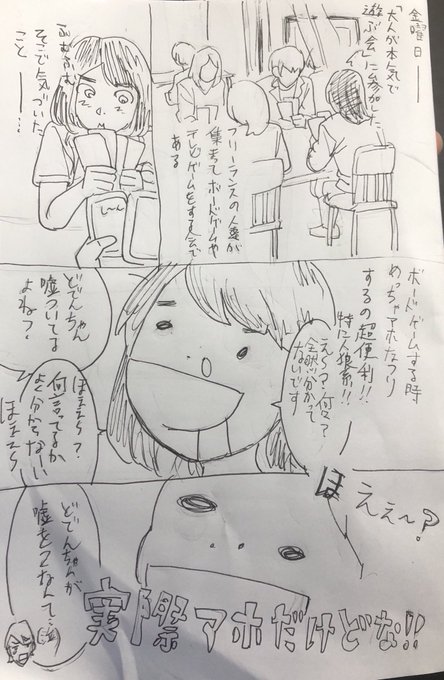 金曜日―
「大人が本気で
遊ぶ会に参加
フリーランスの人達が
集まってボードゲームや
テレビゲームをする会で
ある
ふむふむ
そこで気づいた
こと―…
ボードゲームする時
めっちゃアホなフリ
するの超便利!!
特に人狼系!!
何??
全然分かって
ないです
どでんちゃん
嘘ついてる
よねっ?
何言ってるか
よく分からない
ほえぇ〜?
どでんちゃんが
嘘をつくなんて…
実際アホだけどな!!